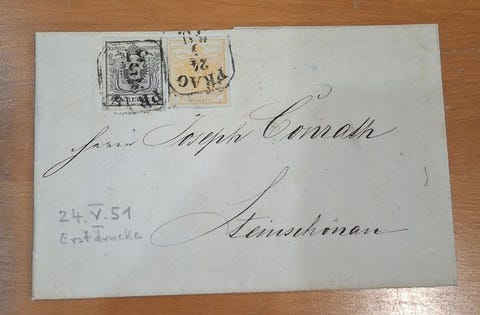 PRAG
24
MAI
PRAG
Herrn Joseph Conrath
Steinschönau
24.V.51
Erstdrucke